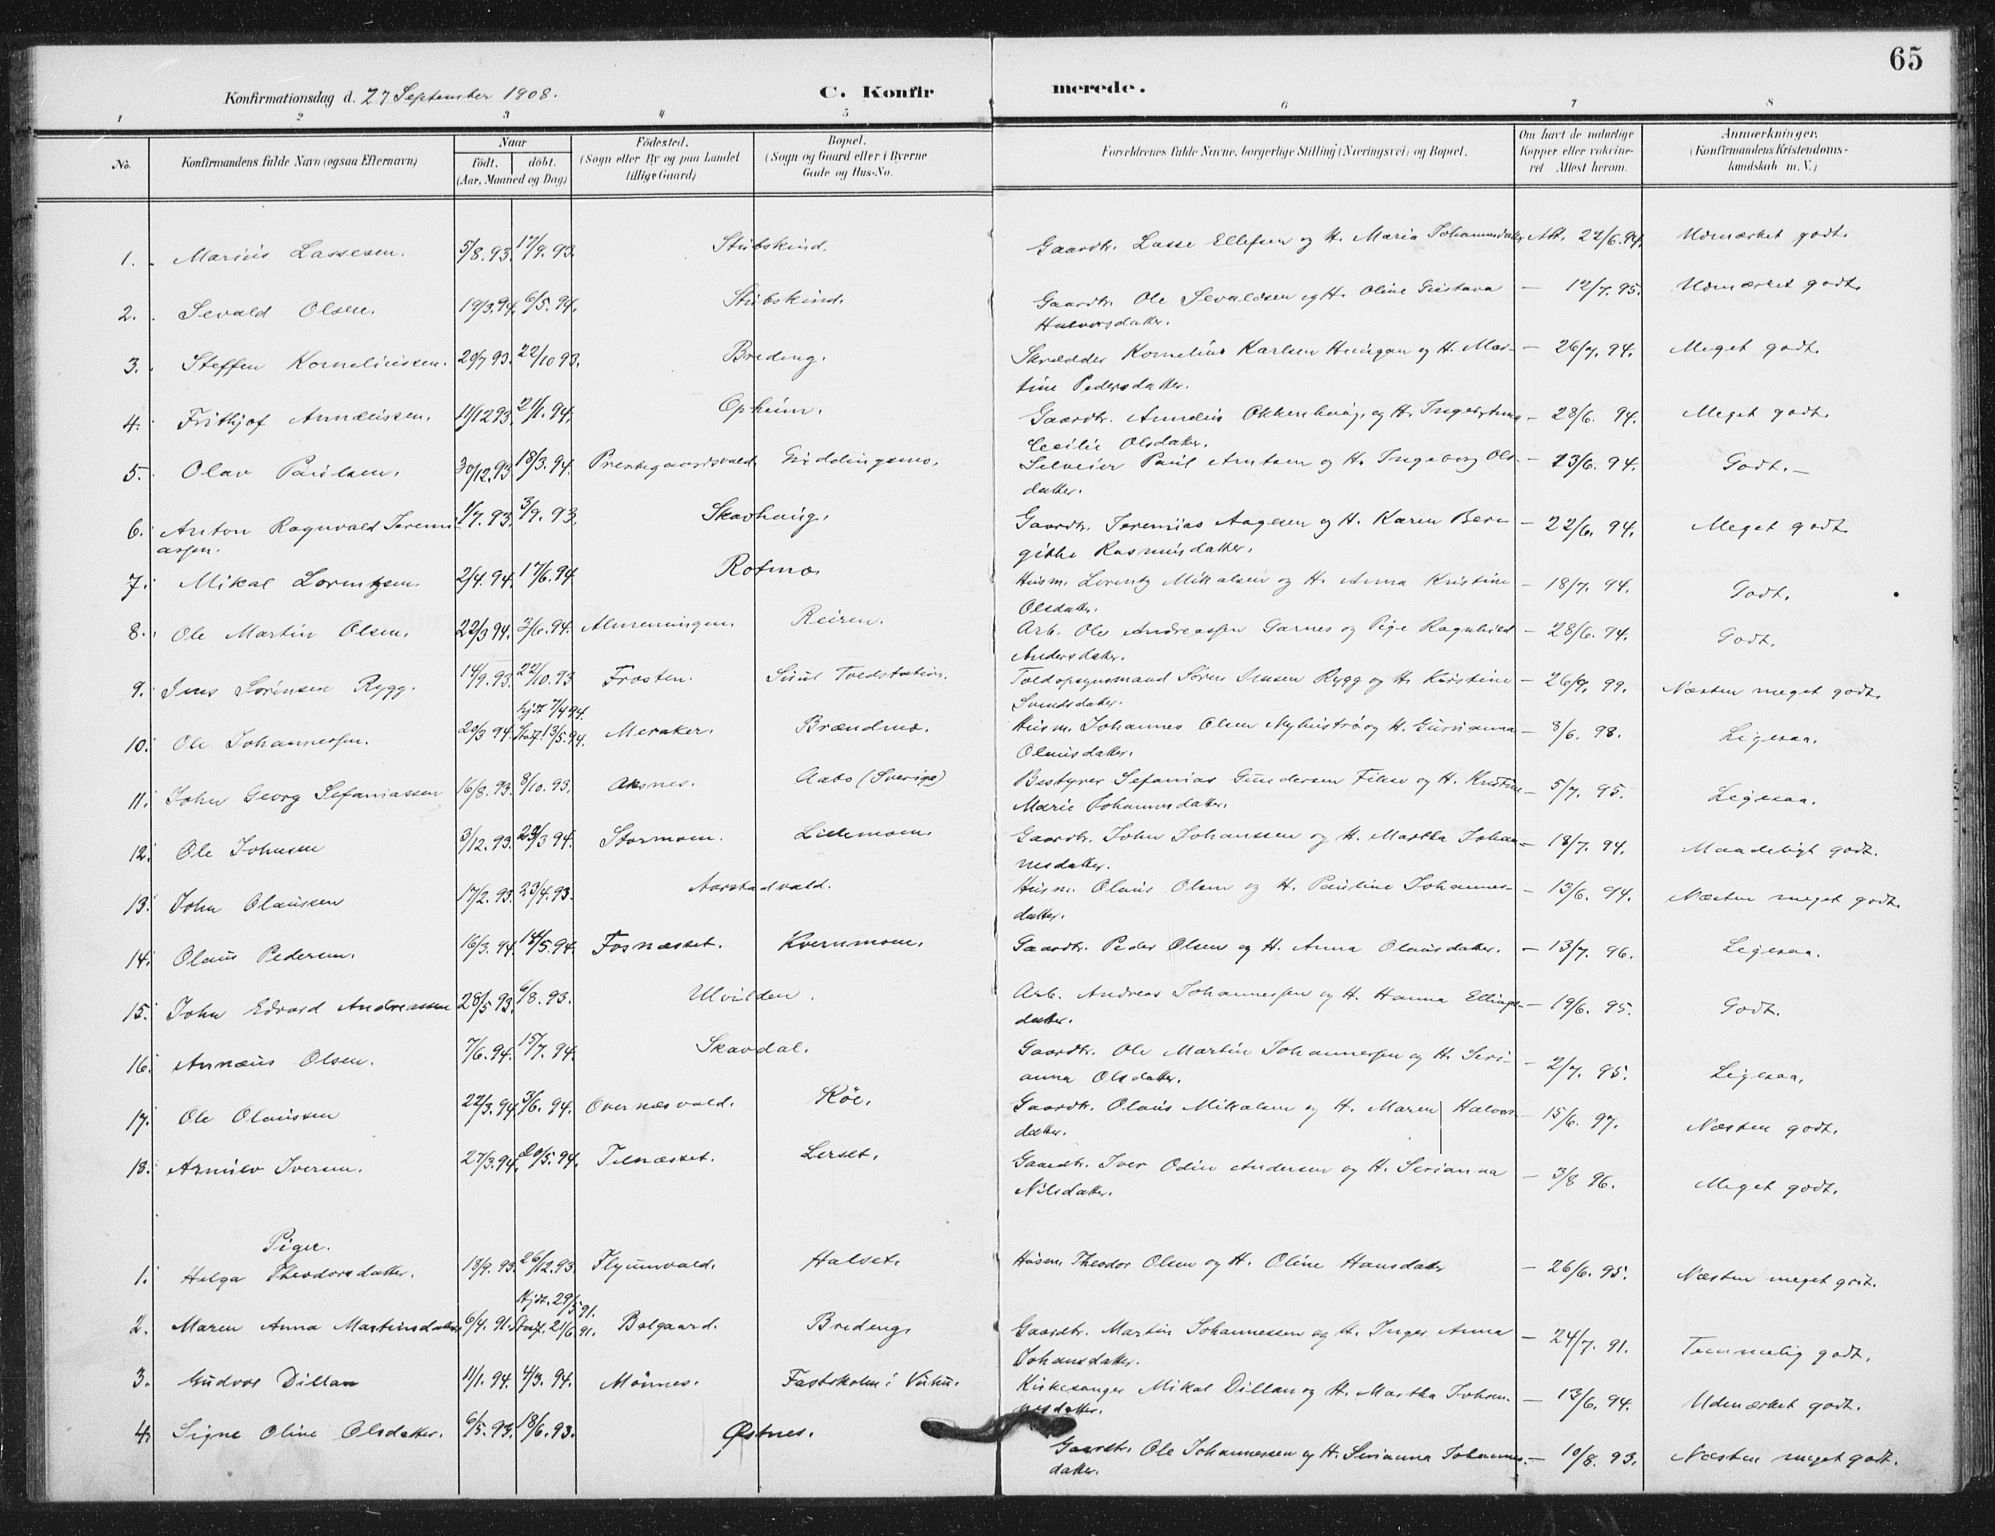 65
Konfirmationsdag d. 27 September 1908.
C. Konfirmerede.
1 2 3 4 5 6 7 8
No.
Konfirmandens fulde Navn (ogsaa Efternavn)
Naar
født. døbt.
(Aar, Maaned og Dag)
Fødested.
(Sogn eller By og paa Landet
tillige Gaard)
Bopæl.
(Sogn og Gaard eller i Byerne
Gade og Hus-No.
Forældrenes fulde Navne, borgerlige Stilling (Næringsvei) og Bopæl.
Om havt de naturlige
Kopper eller vakcine-
ret Attest herom.
Anmærkninger.
(Konfirmandens Kristendoms-
kundskab m. V.)
1. Marius Lassesen. 5/8.93. 17/9.93. Stubskind. Gaardbr. Lasse Ellefsen og H. Maria Johannesdatter Att. 22/6.94. Udmærket godt.
2. Sevald Olsen. 19/3.94. 6/5.94. Stubskind. Gaardbr. Ole Sevaldsen og H. Oline Gustava — 12/7.95. Udmærket godt.
Halvorsdatter.
3. Steffen Korneliussen. 29/7.93. 22/10 93. Breding. Skrædder Kornelius Karlsen og H. Mar- — 26/7. 94. Meget godt.
tine Pedersdatter.
4. Frithjof Annæussen. 11/12 93. 21/1. 94. Opheim. Gaardbr. Annæus og H. — 28/6. 94. Meget godt.
Cecilie Olsdatter.
5. Olav Paulsen. 30/12.93. 18/3.94. Prestegaardsvald. Giddingsmo. Paul Arntsen og H. Ingeborg Ols- — 23/6. 94. Godt.—
datter.
6. Anton Ragnvald Jeremi- 1/7.93. 3/9.93. Skavhaug. Gaardbr. Jeremias Aagesen og H. Karen Ber- — 22/6. 94. Meget godt
assen. githe Rasmusdatter.
7. Mikal Lorentzen 2/4.94. 17/6.94 Rotmo. Husm. Lorentz Mikalsen og H. Anna Kristine — 18/7. 94. Godt.
Olsdatter.
8. Ole Martin Olsen. 22/3 94. 3/6. 94. Almenningen. Reiren. Arb. Ole Andreassen Garnes og Pige Ragnhild — 28/6. 94. Godt.
Andersdatter.
9. Jens Sørensen Rygg. 14/9.93. 22/10.93 Frosten. Suul Toldstation. Toldopsynsmand Søren Jensen Rygg og H. Kirstine — 26/9. 99. Næsten meget godt.
Svendsdatter.
10. Ole Johannessen. 20/3 94. hjdt 7/4 94. Stadf. 13/5.94. Meraker. Brændmo. Husm. Johannes Olsen og H. Gurianna — 8/6. 98. Ligesaa.
Olausdatter.
11. John Georg Sefaniassen 16/8.93. 8/10.93. Aksnes. Aabo (Sverige) Bestyrer Sefanias Gundersen og H. Kristine — 5/7. 95. Ligesaa.
Marie Johannesdatter.
12. Ole Johnsen 3/12.93. 23/3 94. Stormoen. Lillemoen. Gaardbr. John Johanssen og H. Martha Johan- — 18/7. 94. Maadeligt godt.
nesdatter.
13. John Olaussen 17/2.93. 23/4.93. Aarstadvald. Husm. Olaus Olsen og H. Pauline Johannes- — 13/6. 94. Næsten meget godt.
datter.
14. Olaus Pedersen. 16/3.94. 14/5.94. Fosnæsset. Kvernmoen. Gaardbr. Peder Olsen og H. Anna Olausdatter. — 13/7. 96. Ligesaa.
15. John Edvard Andreassen 28/5 93. 6/8.93. Ulvilden. Arb. Andreas Johannessen og H. Hanna Ellings- — 19/6. 95. Godt.
datter.
16. Annæus Olsen. 7/6.94. 15/7.94. Skavdal. Gaardbr. Ole Martin Johannessen og H. Seri- — 2/7. 95. Ligesaa.
anna Olsdatter.
17. Ole Olaussen 22/3.94. 3/6.94. Overnæsvald. Køe. Gaardbr. Olaus Mikalsen og H. Maren Halvors- — 15/6. 97. Næsten godt.
datter.
18. Arnulv Iversen. 27/3.94. 20/5.94. Tilnæsset. Lerset. Gaardbr. Iver Odin Andersen og H. Serianna — 3/8 96. Meget godt.
Nilsdatter.
Piger.
1. Helga Theodorsdatter. 18/9.93. 26/12.93. Flyumvald. Halset. Husm. Theodor Olsen og H. Oline Hansdatter — 26/6. 95. Næsten meget godt.
2. Maren Anna Martinsdatter 6/4.91. Hjdt. 29/5 91. Stadf. 21/6 91. Balgaard. Breding. Gaardbr. Martin Johannessen og H. Inger Anna — 24/7. 91. Temmelig godt.
Johansdatter.
3. Gudvor Dillan 11/1.94. 4/3.94. Mønnes. Fastskolen i Vuku. Kirkesanger Mikal Dillan og H. Martha Johan- — 13/6. 94. Udmærket godt.
nesdatter.
4. Signe Oline Olsdatter. 6/5.93. 18/6.93. Østnes. Gaardbr. Ole Johannessen og H. Serianna Johannes- — 10/8. 93. Næsten meget godt.
datter.